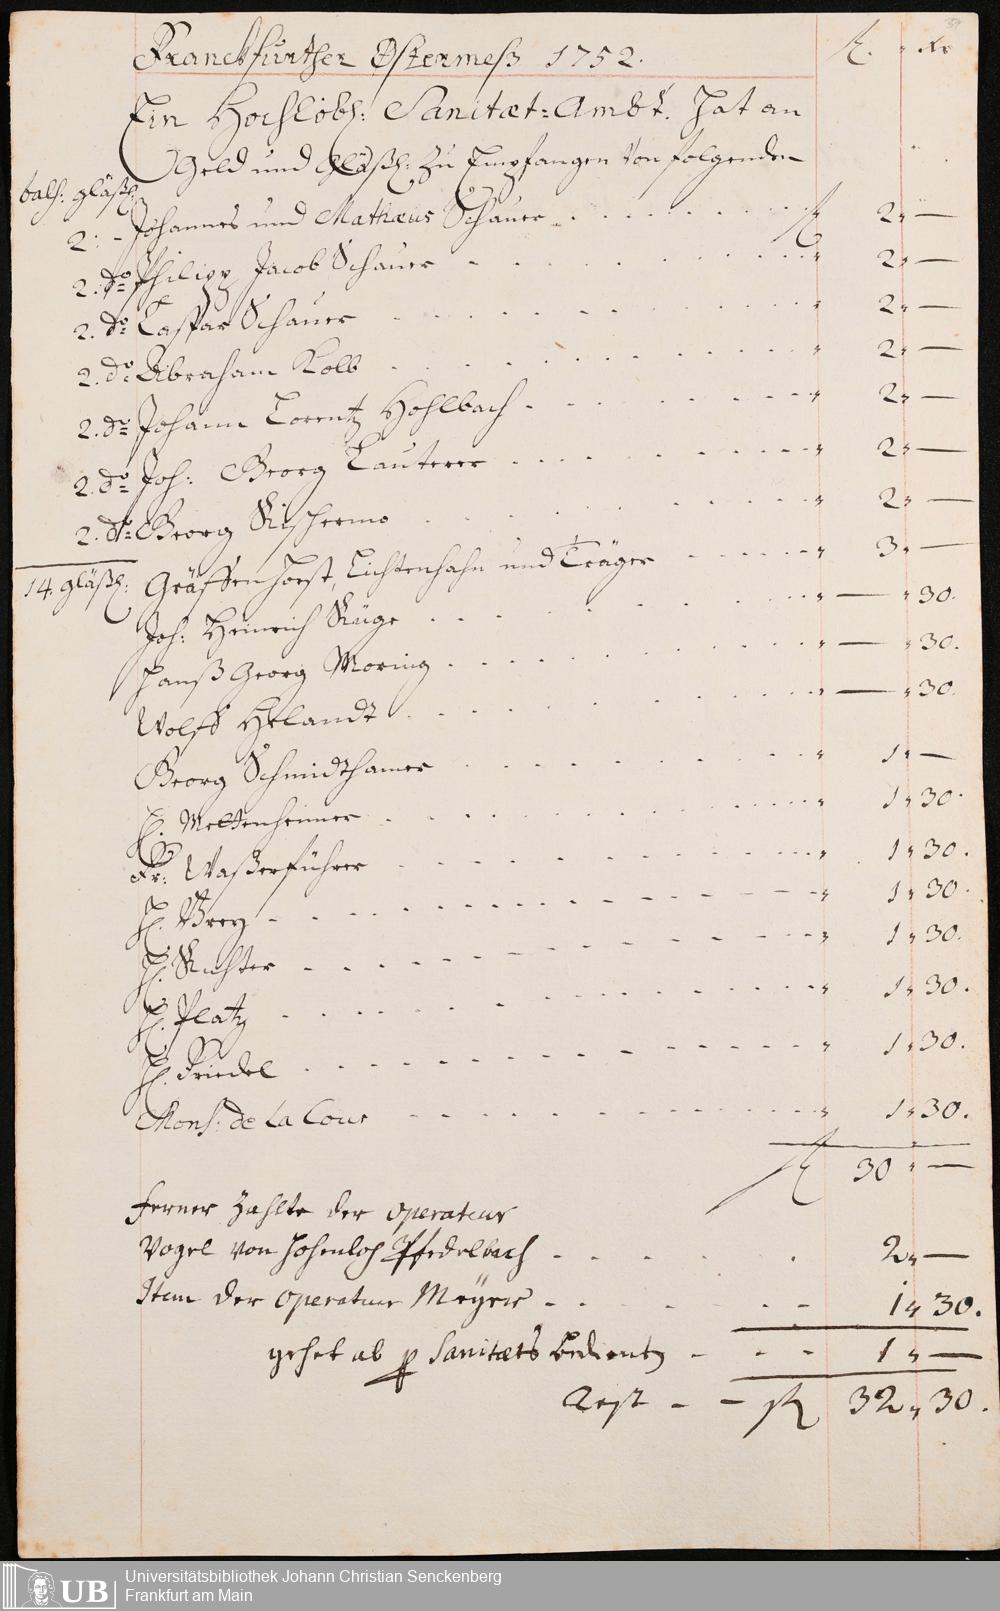 39
Franckfurther Ostermeß 1752. fl. " Kr
Ein Hochlöbl: Sanitæt=Ambt. Hat an
Geld und Gläßl: zu Empfangen von folgenden
bals: gläßl:
2: - Johannes und Mathæus Schauer . . . . . . . fl 2 " —
2. do= Philipp Jacob Schauer - . . . . . . . " 2 " —
2. do= Casspar Schauer . . . . . . . . " 2 " —
2. do: Abraham Kolb . . . . . . . . " 2 " —
2. do= Johann Lorentz Hohlbach - . . . . . . " 2 " —
2. do= Joh: Georg Lauterer . . . . . . . " 2 " —
2. do= Georg . . . . . . . . " 2 " —
14. gläßl: Gräffenhorst, Lichtenhahn und Träger - - - - - " 3 " —
Joh: Heinrich Rüge . . . . . . . . " — " 30.
Hanß Georg Moring . . . . . . . . " — " 30.
Wolff Helandt . . . . . . . . " — " 30.
Georg Schmidthamer . . . . . . . " 1 " —
H. Mettenheimer . . . . . . . . " 1 " 30.
Fr: Waßerführer - - - - - - - - " 1 " 30.
H. Brey - - - - - - - - - " 1 " 30.
H. Richter - - - - - - - - - " 1 " 30.
H. Platz . . . . . . . . . " 1 " 30.
H. Riedel . . . . . . . . . " 1 " 30.
Mons: de La Cour - - - - - - - - " 1 " 30.
fl 30 " —
ferner zahlte der operateur
Vogel von Hohenloh Pfedelbach - . . . . . 2 " —
Item der operateur Meyer - - . . . - - 1 " 30.
gehet ab p Sanitæts bedientz - - - - 1 " —
Rest - - fl 32 " 30.
UB
Universitätsbibliothek Johann Christian Senckenberg
Frankfurt am Main